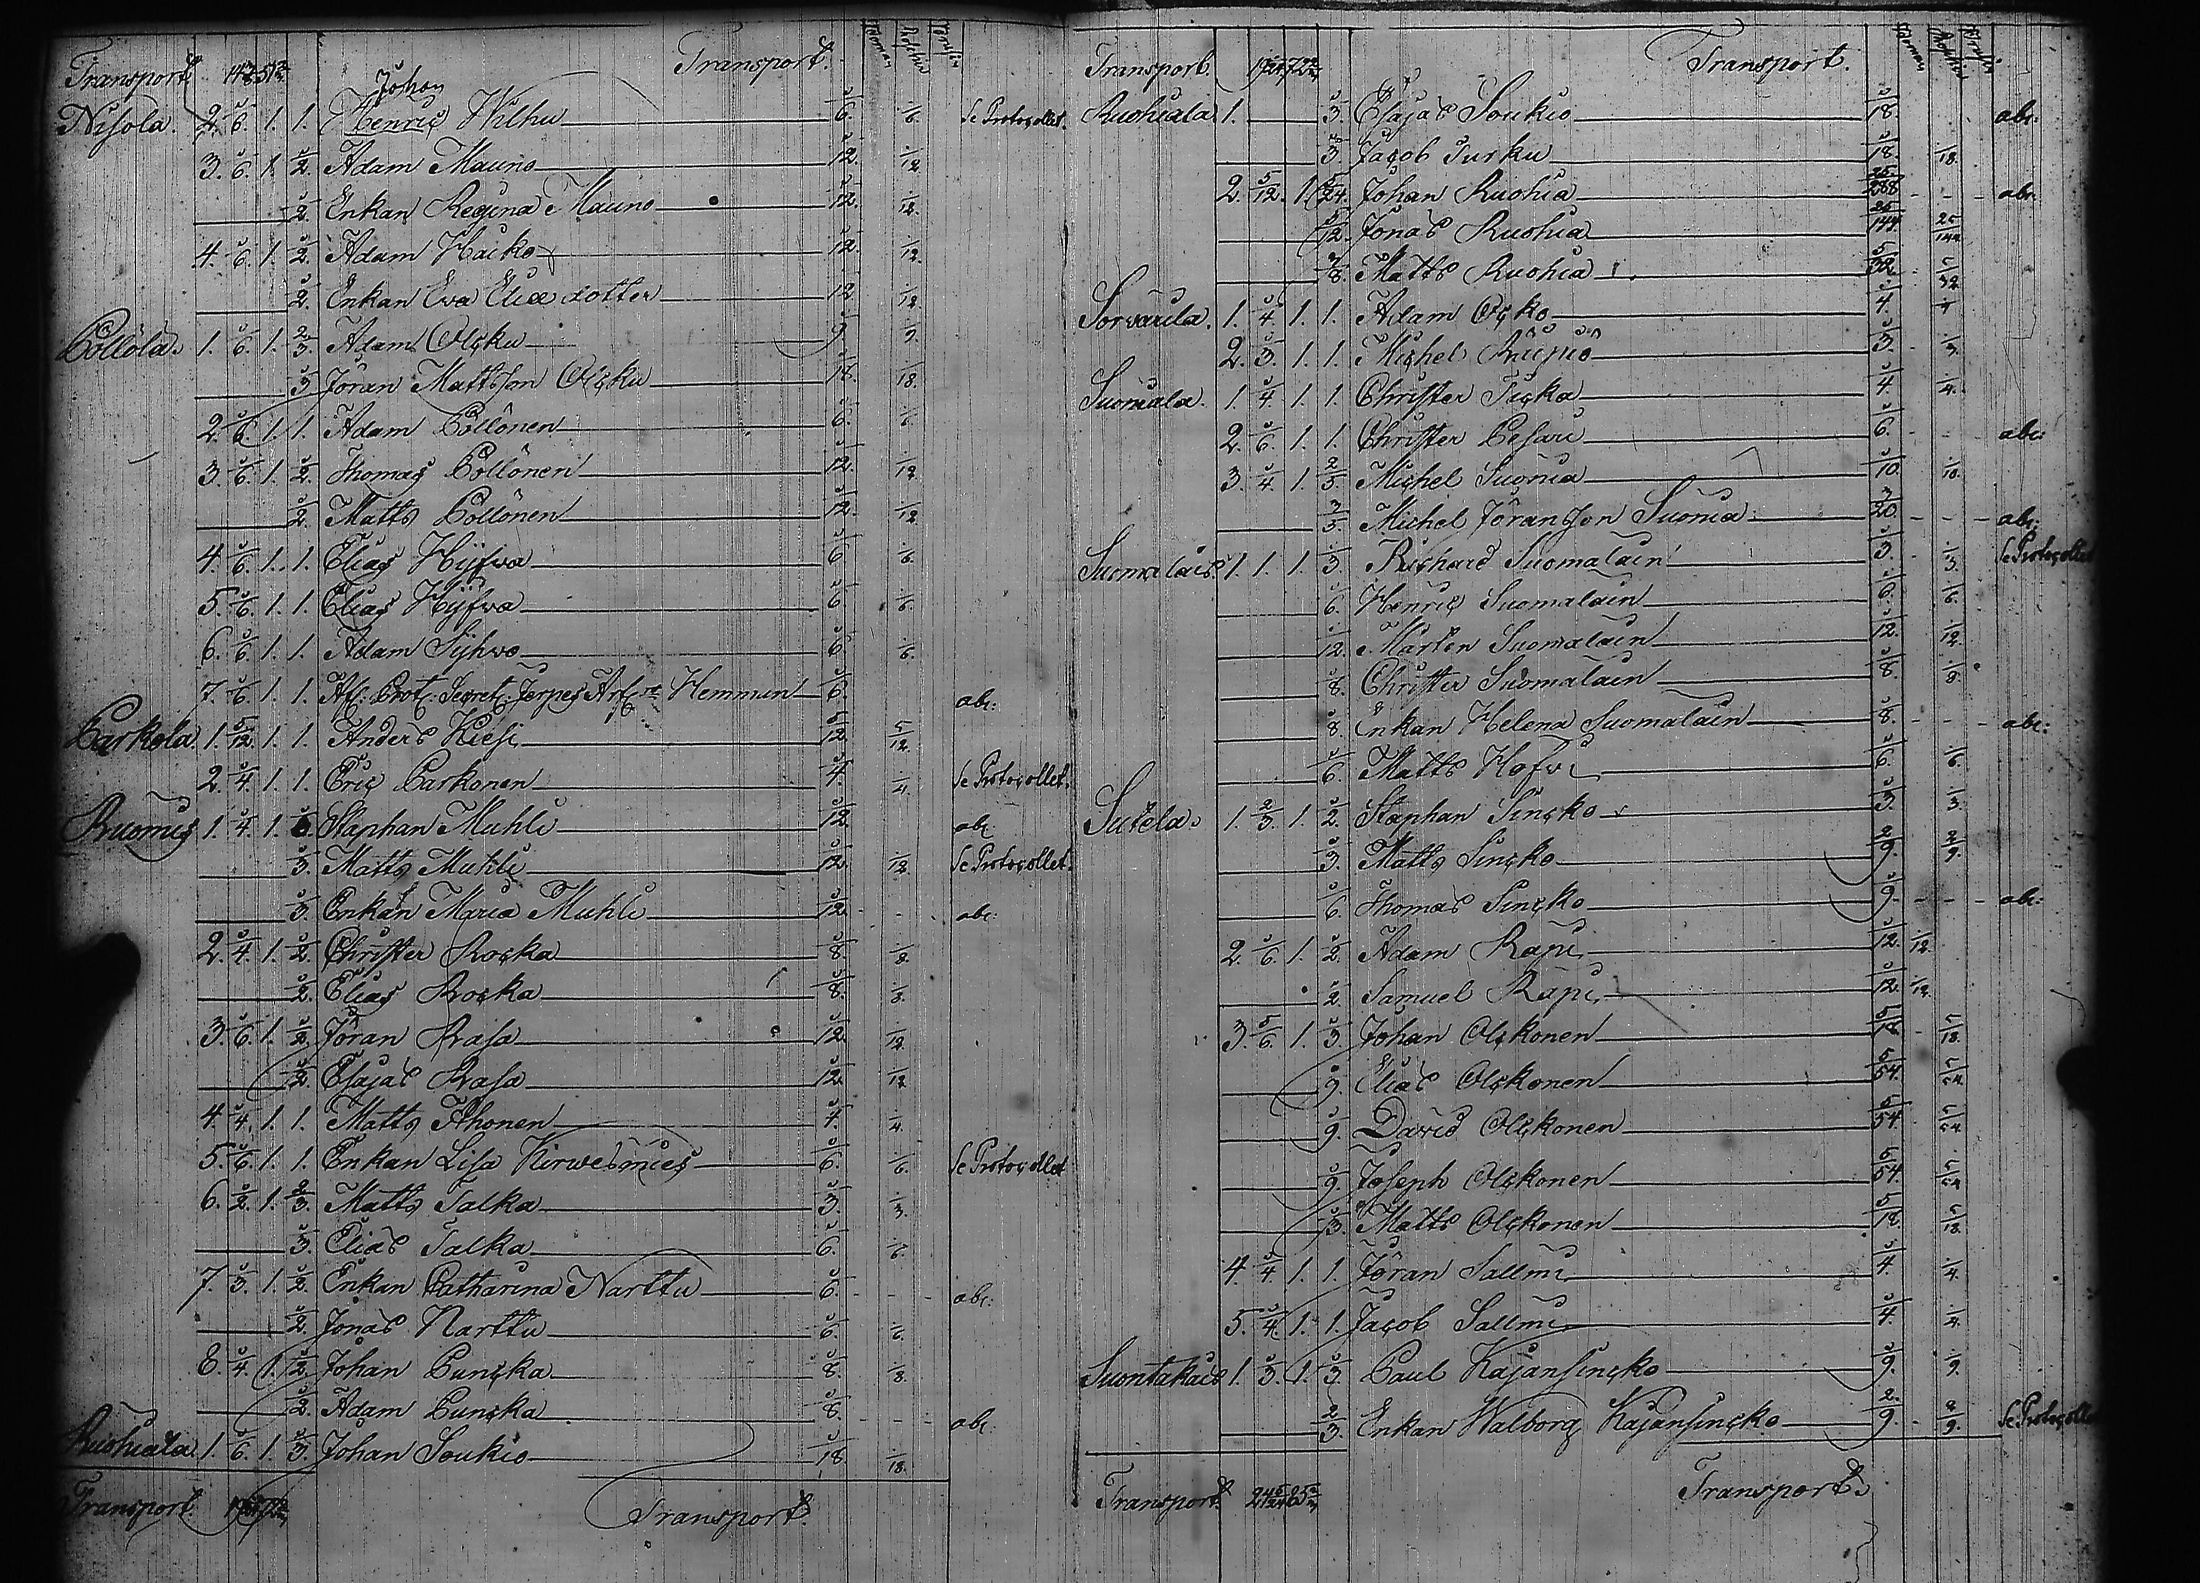 Transport. Transport.
Nisola. 2. 1/6. 1. 1. Johan Henric Wilhu 1/6. 1/6. Se Protocollet.
3. 1/6. 1. 1/2. Adam Mauno 1/12. 1/12.
1/2. Enkan Regina Mauno 1/12. 1/12.
4. 1/6. 1. 1/2. Adam Haiko 1/12. 1/12.
1/2. Enkan Eva Eliæ dotter 1/12. 1/12.
Pöllölä. 1. 1/6. 1. 2/3. Adam Olcku 1/9. 1/9.
1/3. Jöran Mattsson Olcku 1/18. 1/18.
2. 1/6. 1. 1. Adam Pöllönen 1/6. 1/6.
3. 1/6. 1. 1/2. Thomas Pöllönen 1/12. 1/12.
1/2. Matts Pöllönen 1/12. 1/12.
4. 1/6. 1. 1. Elias Hyfwa 1/6. 1/6.
5. 1/6. 1. 1. Elias Hyfwa 1/6. 1/6.
6. 1/6. 1. 1. Adam Syhwo 1/6. 1/6.
7. 1/6. 1. 1. Afl. Prot. Secret. Hemmun 1/6. abs:
Parkola. 1. 5/12. 1. 1. Anders Kiesi 5/12. 5/12.
2. 1/4. 1. 1. Eric Parkonen 1/4. 1/4. Se Protocollet.
Ruomis 1. 1/4. 1. Staphan Muhli 1/12. abs:
1/3. Matts Muhli 1/12. 1/12. Se Protocollet.
1/3. Enkan Maria Muhli 1/12. abs:
2. 1/4. 1. 1/2. Christer Rocka 1/8. 1/8.
1/2. Elias Rocka 1/8. 1/8.
3. 1/6. 1. 1/2. Jöran Rasa 1/12. 1/12.
1/2. Esajas Rasa 1/12. 1/12.
4. 1/4. 1. 1. Matts Ihonen 1/4. 1/4.
5. 1/6. 1. 1. Enkan Lisa Kirwesmies 1/6. 1/6. Se Protocollet
6. 1/2. 1. 2/3. Matts Talka 1/3. 1/3.
1/3. Elias Talka 1/6. 1/6.
7. 1/3. 1. 1/2. Enkan Catharina Narttu 1/6. abs:
1/2. Jonas Narttu 1/6. 1/6.
8. 1/4. 1. 1/2. Johan Puncka 1/8. 1/8.
1/2. Adam Puncka 1/8. abs:
Ruohiala. 1. 1/6. 1. 1/3. Johan Soukio 1/18. 1/18.
Transport. Transport.
Transport. Transport.
Ruohiala 1. 1/3. Esajas Soukio 1/18. abs:
1/3. Jacob Turku 1/18. 1/18.
2. 5/12. 1. 5/24. Johan Ruohia 25/288. abs:
5/12. Jonas Ruohia 25/144. 25/144.
3/8. Matts Ruohia 5/32. 5/32.
Sorwarila. 1. 1/4. 1. 1. Adam Ocko 1/4. 1/4
2. 1/3. 1. 1. Michel 1/3. 1/3.
Suomala. 1. 1/4. 1. 1. Christer Tucka 1/4. 1/4.
2. 1/6. 1. 1. Christer Pesari 1/6. abs:
3. 1/4. 1. 2/5. Michel Suonia 1/10. 1/10.
3/5. Michel Jöransson Suonia 3/20. abs:
Suomalais. 1. 1. 1. 1/3. Richard Suomalain 1/3. 1/3. Se Protocollet
1/6. Henric Suomalain 1/6. 1/6.
1/12. Mårten Suomalain 1/12. 1/12.
1/8. Christer Suomalain 1/8. 1/8.
1/8. Enkan Helena Suomalain 1/8. abs:
1/6. Matts Hofwi 1/6. 1/6.
Sutela. 1. 2/3. 1. 1/2. Staphan Sincko 1/3. 1/3.
1/3. Matts Sincko 2/9. 2/9.
1/6. Thomas Sincko 1/9. abs:
2. 1/6. 1. 1/2. Adam Rapi 1/12. 1/12.
1/2. Samuel Rapi 1/12. 1/12.
3. 5/6. 1. 1/3. Johan Olckonen 5/18. 5/18.
1/9. Elias Olckonen 5/54. 5/54.
1/9. David Olckonen 5/54. 5/54.
1/9. Joseph Olckonen 5/54. 5/54.
1/3. Matts Olckonen 5/18. 5/18.
4. 1/4. 1. 1. Jöran Sallmi 1/4. 1/4.
5. 1/4. 1. 1. Jacob Sallmi 1/4. 1/4.
Suontakais 1. 1/3. 1. 1/3. Paul Kajansincko 1/9. 1/9.
2/3. Enkan Walborg Kajansincko 2/9. 2/9. Se Protocollet
Transport. Transport.